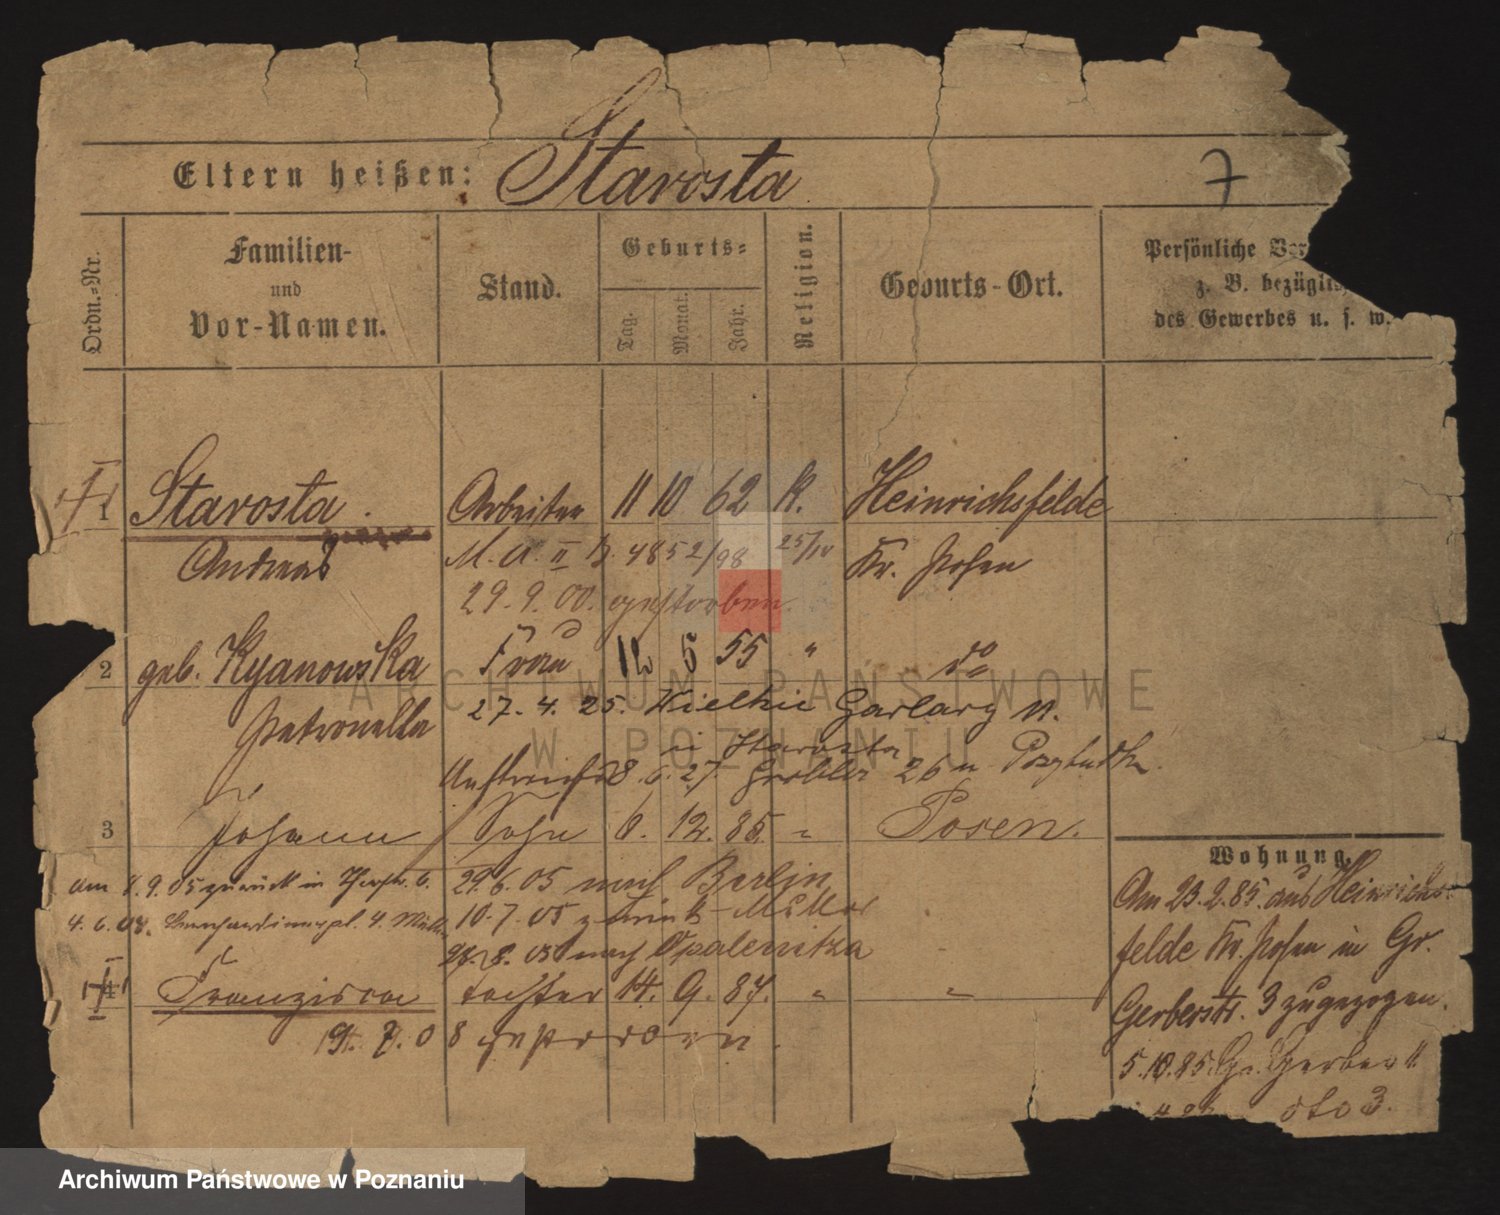 Eltern heißen: Starosta
7
Ordn.-Nr.
Familien-
und
Vor-Namen.
Stand.
Geburts-
Tag.
Monat.
Jahr.
Religion.
Geburts-Ort.
Persönliche
z. B.
des Gewerbes u. s. w.
1 Starosta Arbeiter 11 10 62 k. Heinrichsfelde
Andreas M. A. II B 4852/98 Kr. Posen
29. 9. 00. gestorben
2 geb. Kyanowska Frau 12 5 55 " do
Petronella 27. 4. 25. Wielkie Garbary
8. 6. 27.
3 Johann Sohn 6. 12. 85. " Posen.
Wohnung.
am 9. 05 zurück in 29. 6. 05 nach Berlin
4. 6. 08. Bernhardinerpl. 4. 10. 7. 05 zurück
8. 05 nach Opalenitza
4 Franzisca Tochter 14. 9. 87. " "
19. 08 gestorben.
Am 23. 2. 85. aus Heinrichs-
felde Kr. Posen in Gr.
Gerberstr. 3 zugezogen.
5. 10. 85. Gr. Gerber
3.
ARCHIWUM PAŃSTWOWE
W POZNANIU
Archiwum Państwowe w Poznaniu